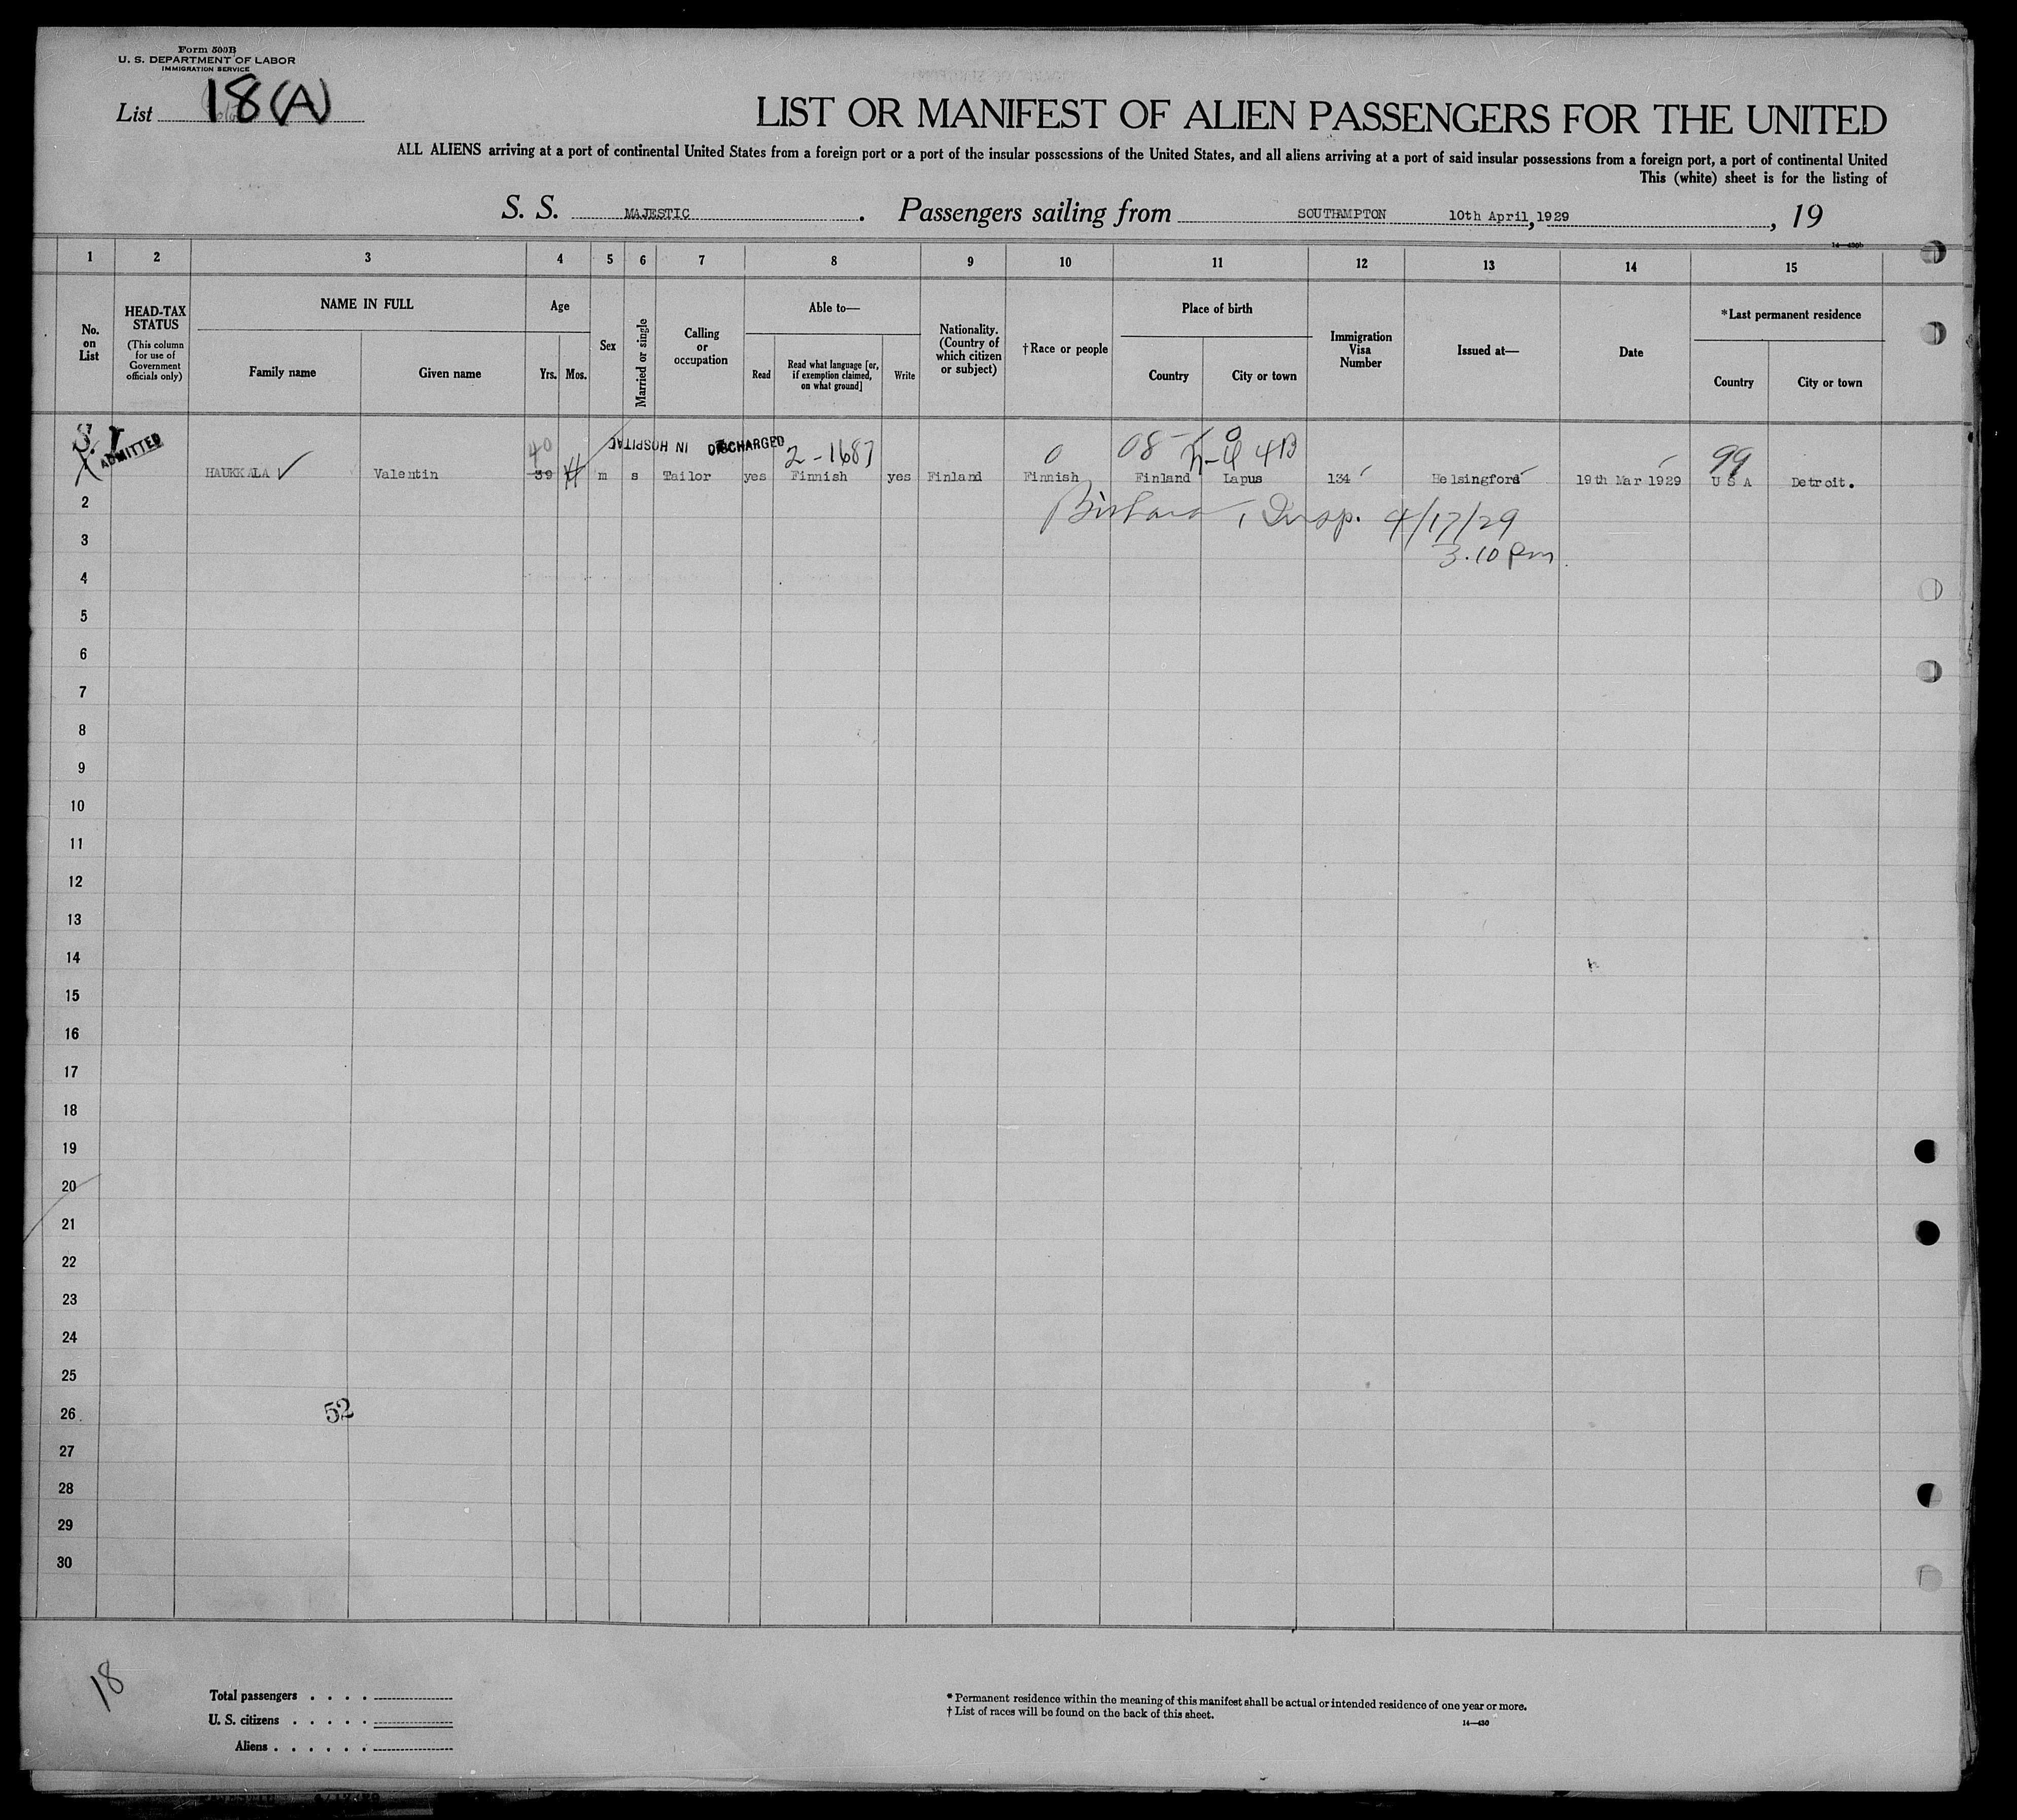 Form 500B
U. S. DEPARTMENT OF LABOR
IMMIGRATION SERVICE
List 18(A)
LIST OR MANIFEST OF ALIEN PASSENGERS FOR THE UNITED
ALL ALIENS arriving at a port of continental United States from a foreign port or a port of the insular possessions of the United States, and all aliens arriving at a port of said insular possessions from a foreign port, a port of continental United
This (white) sheet is for the listing of
S. S. MAJESTIC. Passengers sailing from SOUTHAMPTON 10th April, 1929, 19
14—430b
1 2 3 4 5 6 7 8 9 10 11 12 13 14 15
No. on List
HEAD-TAX STATUS
(This column for use of Government officials only)
NAME IN FULL
Family name
Given name
Age
Yrs. Mos.
Sex
Married or single
Calling or occupation
Able to—
Read
Read what language [or, if exemption claimed, on what ground]
Write
Nationality. (Country of which citizen or subject)
†Race or people
Place of birth
Country
City or town
Immigration Visa Number
Issued at—
Date
*Last permanent residence
Country
City or town
S. I.
ADMITTED
40
IN HOSPITAL
DISCHARGED
2-1687
08
4B
99
HAUKKALA ✓ Valentin 39 m s Tailor yes Finnish yes Finland Finnish Finland Lapus 134 Helsingfors 19th Mar 1929 U S A Detroit.
2
Insp. 4/17/29
3
3.10 pm
4
5
6
7
8
9
10
11
12
13
14
15
16
17
18
19
20
21
22
23
24
25
26
52
27
28
29
30
18
Total passengers . . . .
U. S. citizens . . . . .
Aliens . . . . . .
* Permanent residence within the meaning of this manifest shall be actual or intended residence of one year or more.
† List of races will be found on the back of this sheet.
14—430